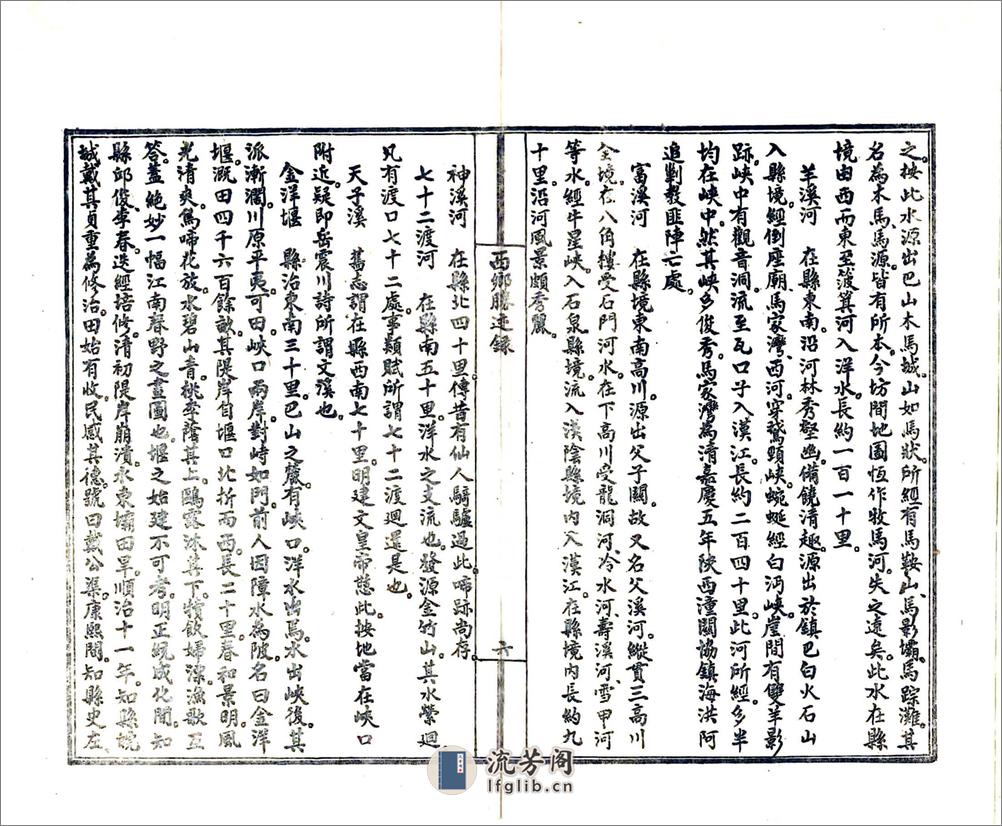 之。按此水源出巴山木馬城。山如馬狀所經有馬鞍山、馬影壩、馬踪灘。其
名為木馬、馬源皆有所本。今坊間地圖恆作牧馬河。失之遠矣。此水在縣
境由西而東至渡箕河入洋水長約一百一十里。
羊溪河 在縣東南。沿河林秀壑幽備饒清趣。源出於鎮巴白火石山
入縣境。經倒座廟、馬家灣、西河穿鵞頸峽蜿蜒經白沔峽。崖間有雙羊影
跡。峽中有觀音洞流至瓦口子入漢江。長約二百四十里。此河所經多半
均在峽中。然其峽多俊秀。馬家灣為清嘉慶五年陝西潼關協鎮海洪阿
追剿教匪陣亡處。
富溪河 在縣境東南高川源出父子關。故又名父溪河。縱貫三高川
全境。在八角樓受石門河水。在下高川受龍洞河、冷水河、壽溪河、雪甲河
等水經牛星峽。入石泉縣境流入漢陰縣境內入漢江。在縣境內長約九
十里。沿河風景頗秀麗。
西鄉勝蹟錄
六
神溪河 在縣北四十里。傳昔有仙人騎驢過此。啼跡尚存。
七十二渡河 在縣南五十里。洋水之支流也。發源金竹山。其水縈迴、
凡有渡口七十二處。事類賦所謂七十二渡迴還是也。
天子溪 舊志謂在縣西南七十里。明建文皇帝憇此。按地當在峽口
附近。疑即岳震川詩所謂文溪也。
金洋堰 縣治東南三十里。巴山之麓。有峽口。洋水出焉。水出峽後。其
派漸濶。川原平夷。可田。峽口兩岸。對峙如門。前人因障水為陂。名曰金洋
堰。溉田四千六百餘畝。其隄岸自堰口北折而西。長二十里。春和景明。風
光清爽。鳥啼花放。水碧山青。桃李蔭其上。鷗鷺沐其下。犢飲婦漂。漁歌互
答。蓋絶妙一幅江南春野之畫圖也。堰之始建不可考。明正統成化間。知
縣邱俊、李春。迭經培修。清初隄岸崩潰。水東壩田旱。順治十一年。知縣
城戴其貞重為修治。田始有收。民感其德。號曰戴公渠。康熙間。知縣史左
流芳阁
lfglib.cn